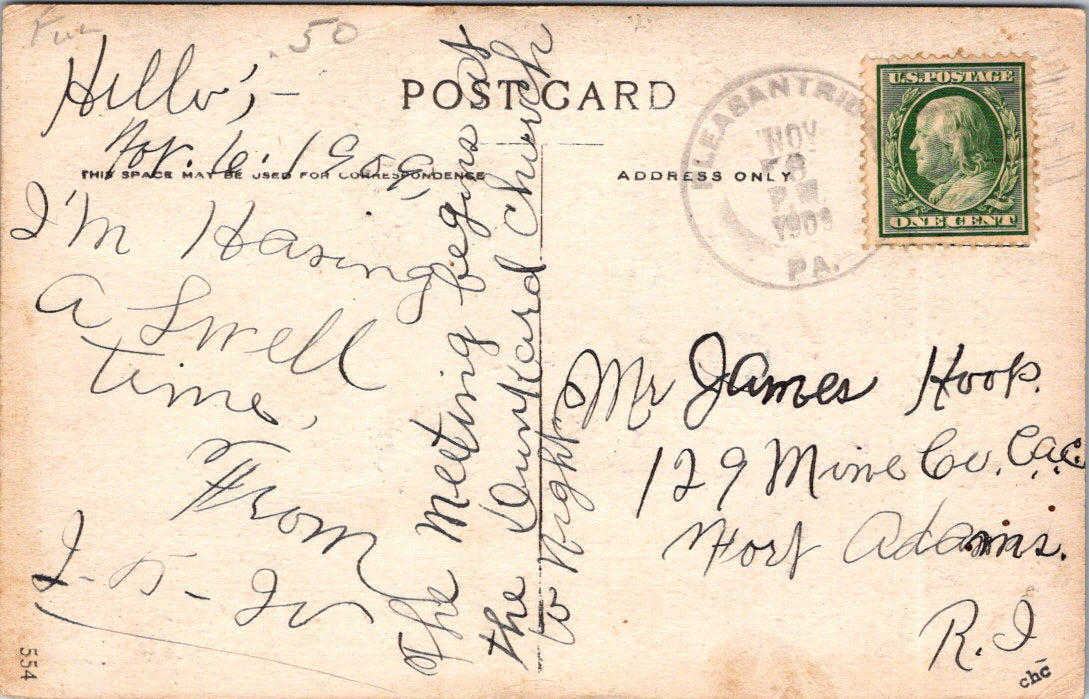 .50
Hello, -
Nov. 6. 1909,
I'm Having
A Swell
time,
From
The Meeting begins at
the Dunkard Church
to Night
POST CARD
THIS SPACE MAY BE USED FOR CORRESPONDENCE
ADDRESS ONLY
PLEASANTRID
NOV
8
P.M
1909
PA.
U.S. POSTAGE
ONE CENT
Mr James Hoop.
129 Mine Co. C.A.C.
Fort Adams.
R.I
chc
554